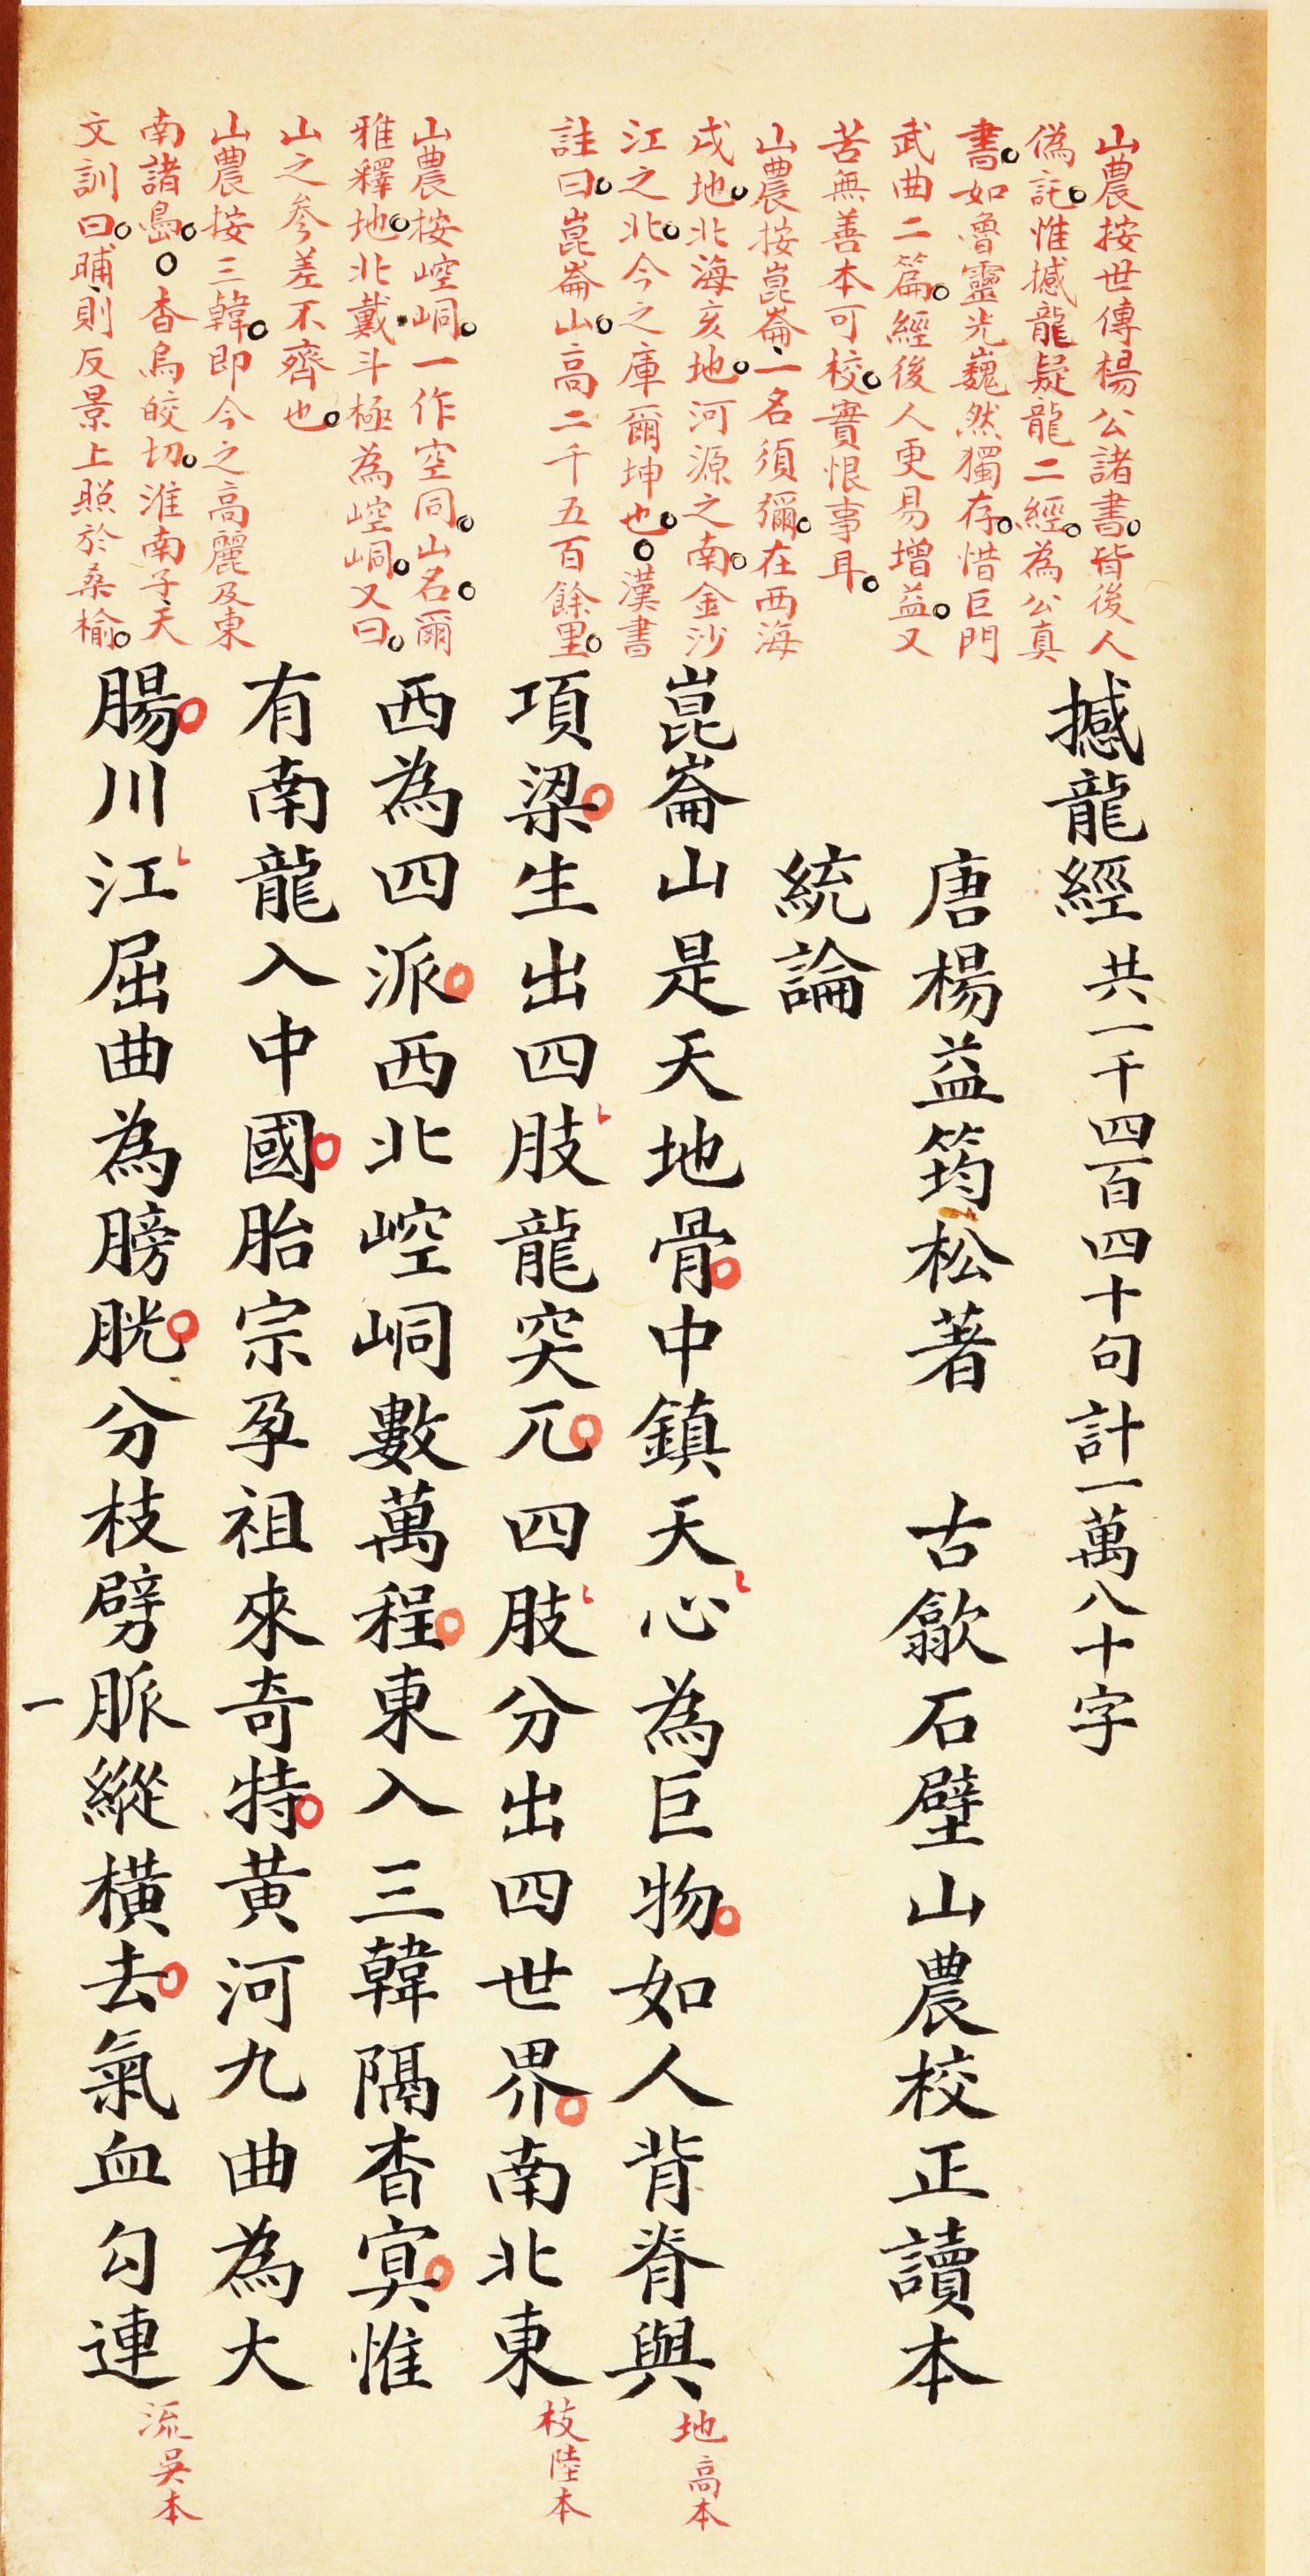 山農按世傳楊公諸書皆後人
偽託惟撼龍疑龍二經為公真
書如魯靈光巍然獨存惜巨門
武曲二篇經後人更易增益又
苦無善本可校實恨事耳
山農按崑崙一名須彌在西海
戌地北海亥地河源之南金沙
江之北今之庫爾坤也漢書
註曰崑崙山高二千五百餘里
山農按崆峒一作空同山名爾
雅釋地北戴斗極為崆峒又曰
山之參差不齊也
山農按三韓即今之高麗及東
南諸島杳烏皎切淮南子天
文訓曰晡則反景上照於桑榆
撼龍經 共一千四百四十句計一萬八十字
唐楊益筠松著 古歙石壁山農校正讀本
統論
崑崙山是天地骨中鎮天心為巨物如人背脊與
地高本
項梁生出四肢龍突兀四肢分出四世界南北東
枝陸本
西為四派西北崆峒數萬程東入三韓隔杳冥惟
有南龍入中國胎宗孕祖來奇特黃河九曲為大
腸川江屈曲為膀胱分枝劈脈縱橫去氣血勾連
流吳本
一